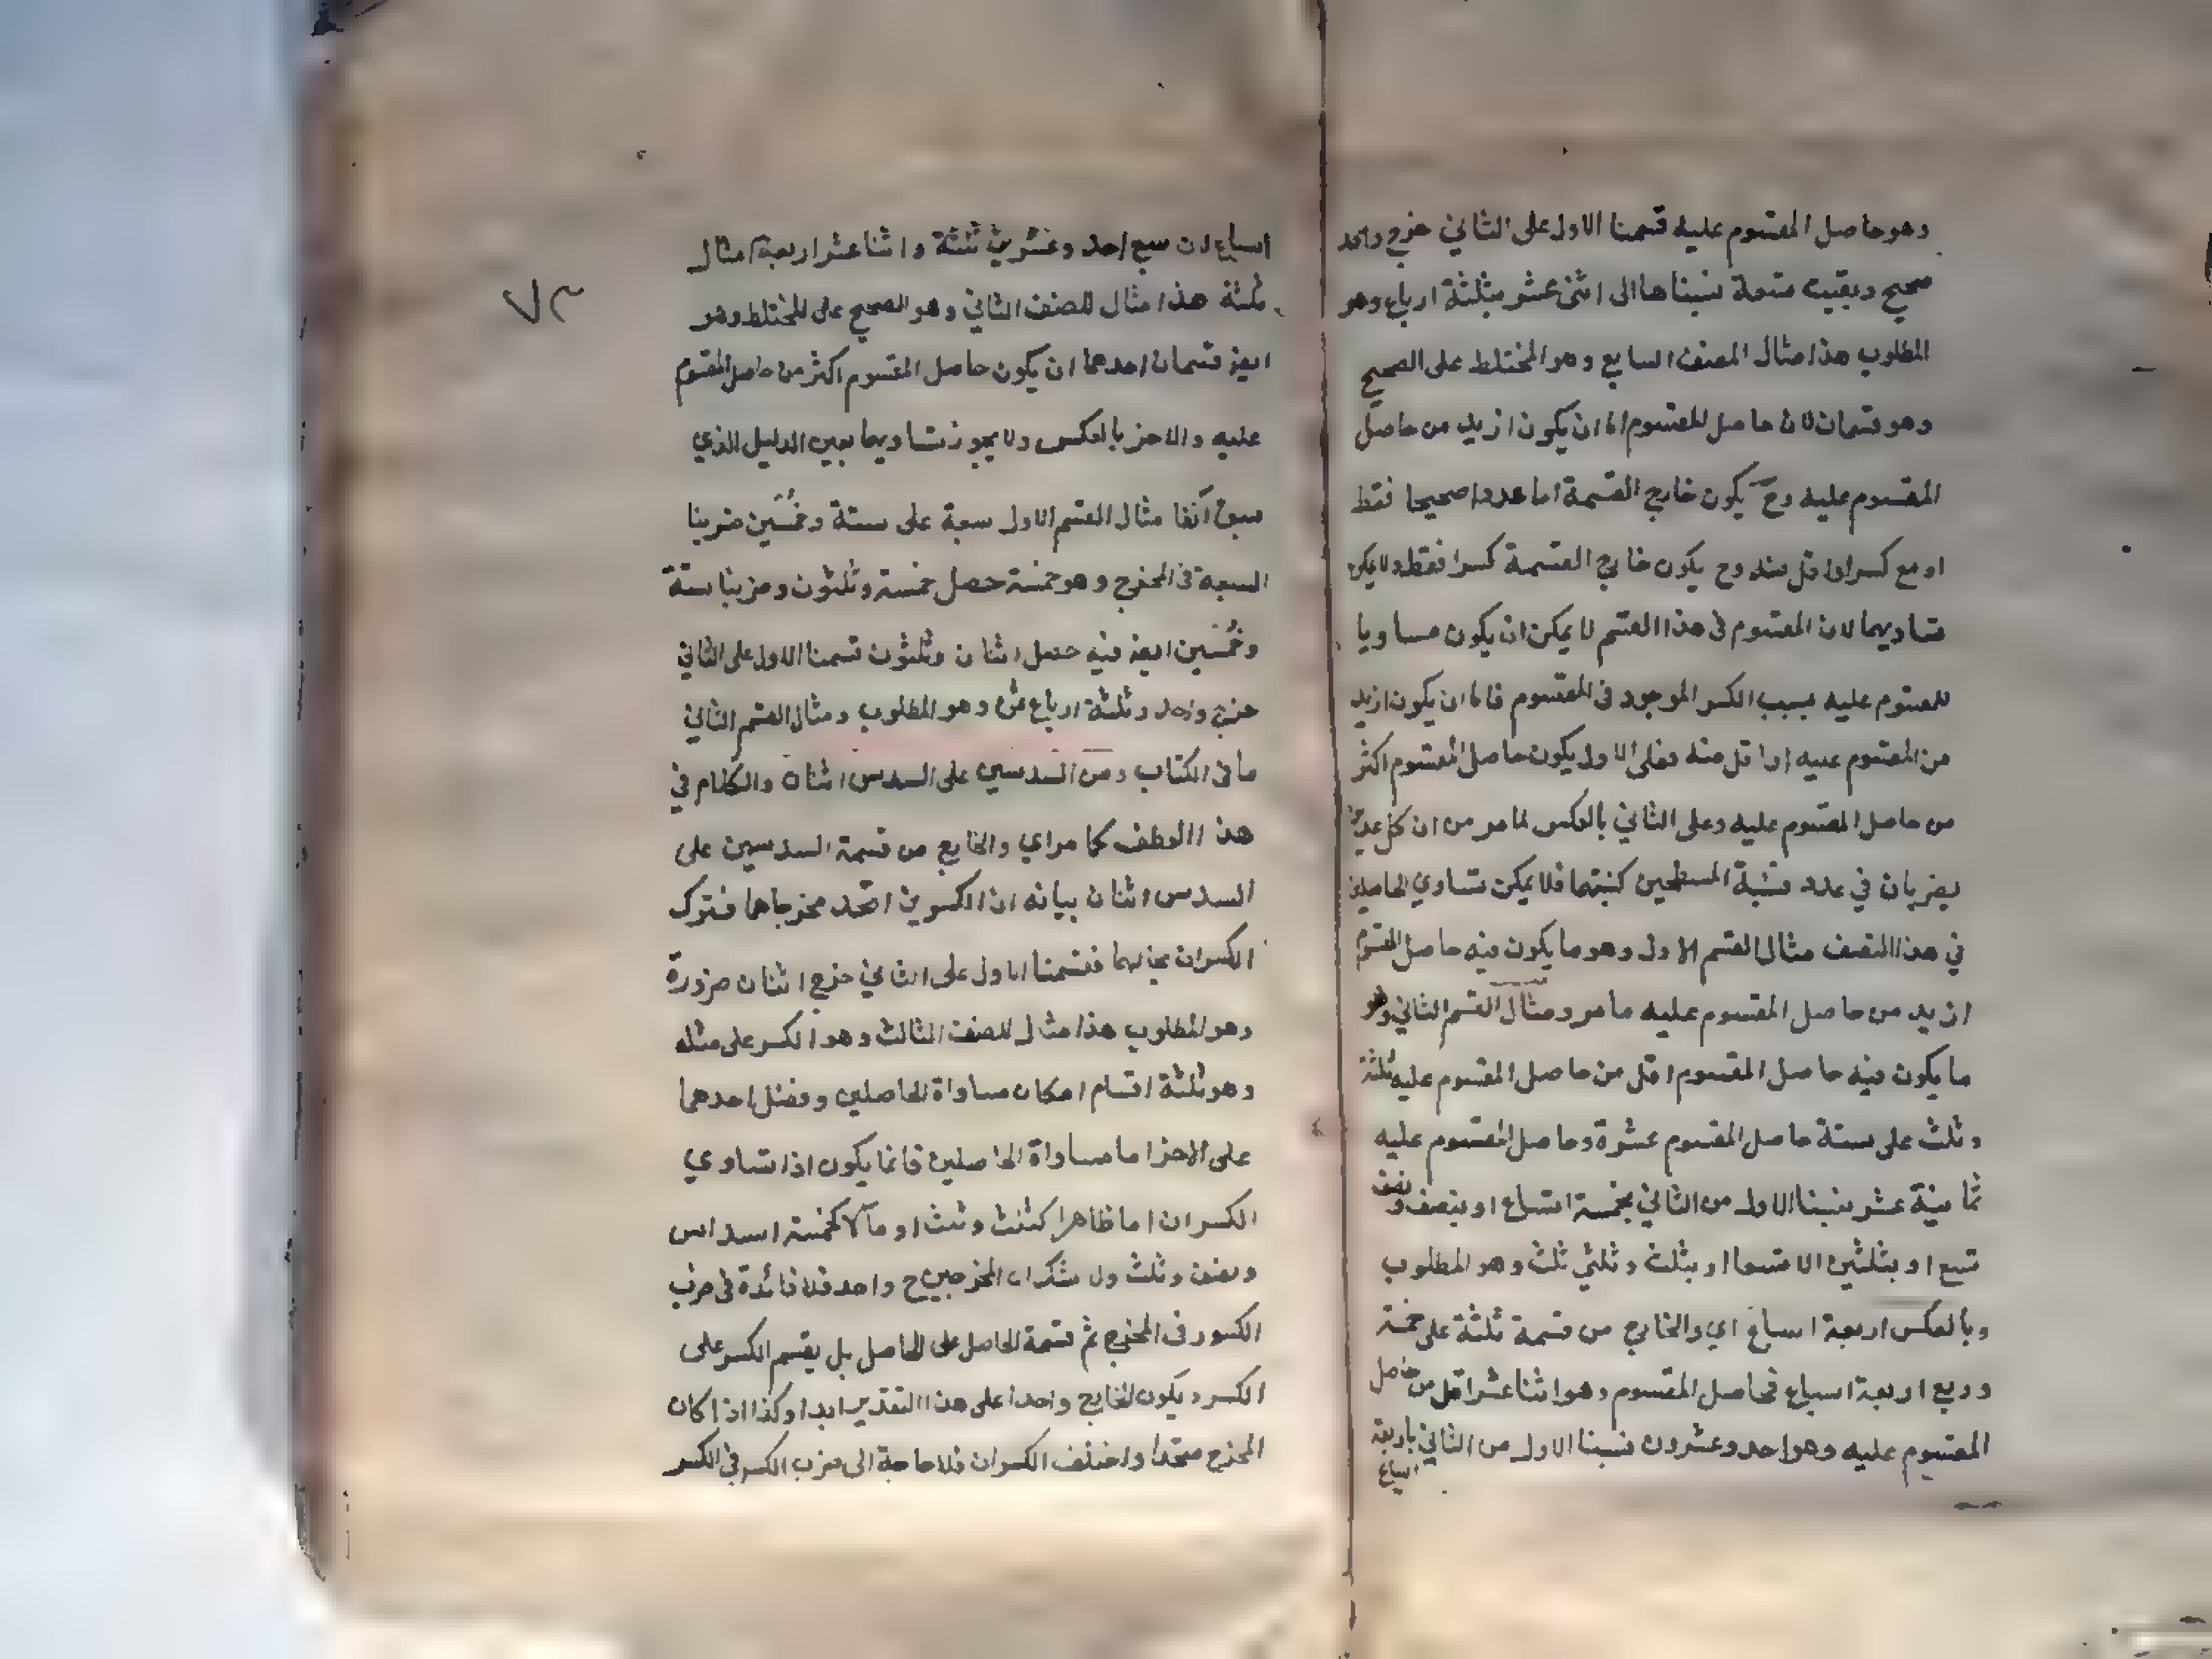 وهو حاصل المقسوم عليه قسمنا الاول على الثاني خرج واحد
صحيح وبقيت تسعة نسبناها الى اثنى عشر بثلثة ارباع وهو
المطلوب هذا مثال المصنف السابع وهو المختلط على الصحيح
وهو قسمان لان حاصل المقسوم اما ان يكون ازيد من حاصل
المقسوم عليه وح يكون خارج القسمة اما عددا صحيحا فقط
او مع كسر او اقل منه وح يكون خارج القسمة كسرا فقط ولا يمكن
تساويهما لان المقسوم فى هذا القسم لا يمكن ان يكون مساويا
للمقسوم عليه بسبب الكسر الموجود فى المقسوم فاما ان يكون ازيد
من المقسوم عليه او اقل منه فعلى الاول يكون حاصل المقسوم اكثر
من حاصل المقسوم عليه وعلى الثاني بالعكس لما مر من ان كل عددين
يضربان في عدد فنسبة المسطحين كنسبتهما فلا يمكن تساوي الحاصلين
في هذا الصنف مثال القسم الاول وهو ما يكون فيه حاصل المقسوم
ازيد من حاصل المقسوم عليه ما مر ومثال القسم الثاني وهو
ما يكون فيه حاصل المقسوم اقل من حاصل المقسوم عليه ثلثة
وثلث على ستة حاصل المقسوم عشرة وحاصل المقسوم عليه
ثمانية عشر نسبنا الاول من الثاني بخمسة اتساع او بنصف ونصف
تسع او بثلثين الا تسعا او بثلث وثلثي ثلث وهو المطلوب
وبالعكس اربعة اسباع اي والخارج من قسمة ثلثة على خمسة
وربع اربعة اسباع فحاصل المقسوم وهو اثنا عشر اقل من حاصل
المقسوم عليه وهو احد وعشرون نسبنا الاول من الثاني باربعة
اسباع
٧٣
اسباع لان سبع احد وعشرين ثلثة واثنا عشر اربعة امثال
ثلثة هذا مثال للصنف الثاني وهو الصحيح على المختلط وهو
ايضر قسمان احدهما ان يكون حاصل المقسوم اكثر من حاصل المقسوم
عليه والاخر بالعكس ولا يجوز تساويهما بعين الدليل الذي
سبق آنفا مثال القسم الاول سبعة على ستة وخُمسَين ضربنا
السبعة فى المخرج وهو خمسة حصل خمسة وثلثون وضربنا ستة
وخُمسَين ايضر فيه حصل اثنان وثلثون قسمنا الاول على الثاني
خرج واحد وثلثة ارباع ثمن وهو المطلوب ومثال القسم الثاني
ما فى الكتاب ومن السدسين على السدس اثنان والكلام في
هذا العطف كما مر اي والخارج من قسمة السدسين على
السدس اثنان بيانه ان الكسرين اتحد مخرجاهما فترك
الكسران بحالهما فقسمنا الاول على الثاني خرج اثنان ضرورة
وهو المطلوب هذا مثال للصنف الثالث وهو الكسر على مثله
وهو ثلثة اقسام امكان مساواة الحاصلين وفضل احدهما
على الاخر اما مساواة الحاصلين فانما يكون اذا تساوي
الكسران اما ظاهرا كثلث وثلث او مآلا كخمسة اسداس
ونصف وثلث المخرجين ح واحد فلا فائدة فى ضرب
الكسور فى المخرج ثم قسمة الحاصل على الحاصل بل يقسم الكسر على
الكسر ويكون الخارج واحدا على هذا التقدير ابدا وكذا اذا كان
المخرج متحدا واختلف الكسران فلا حاجة الى ضرب الكسر في الكسر